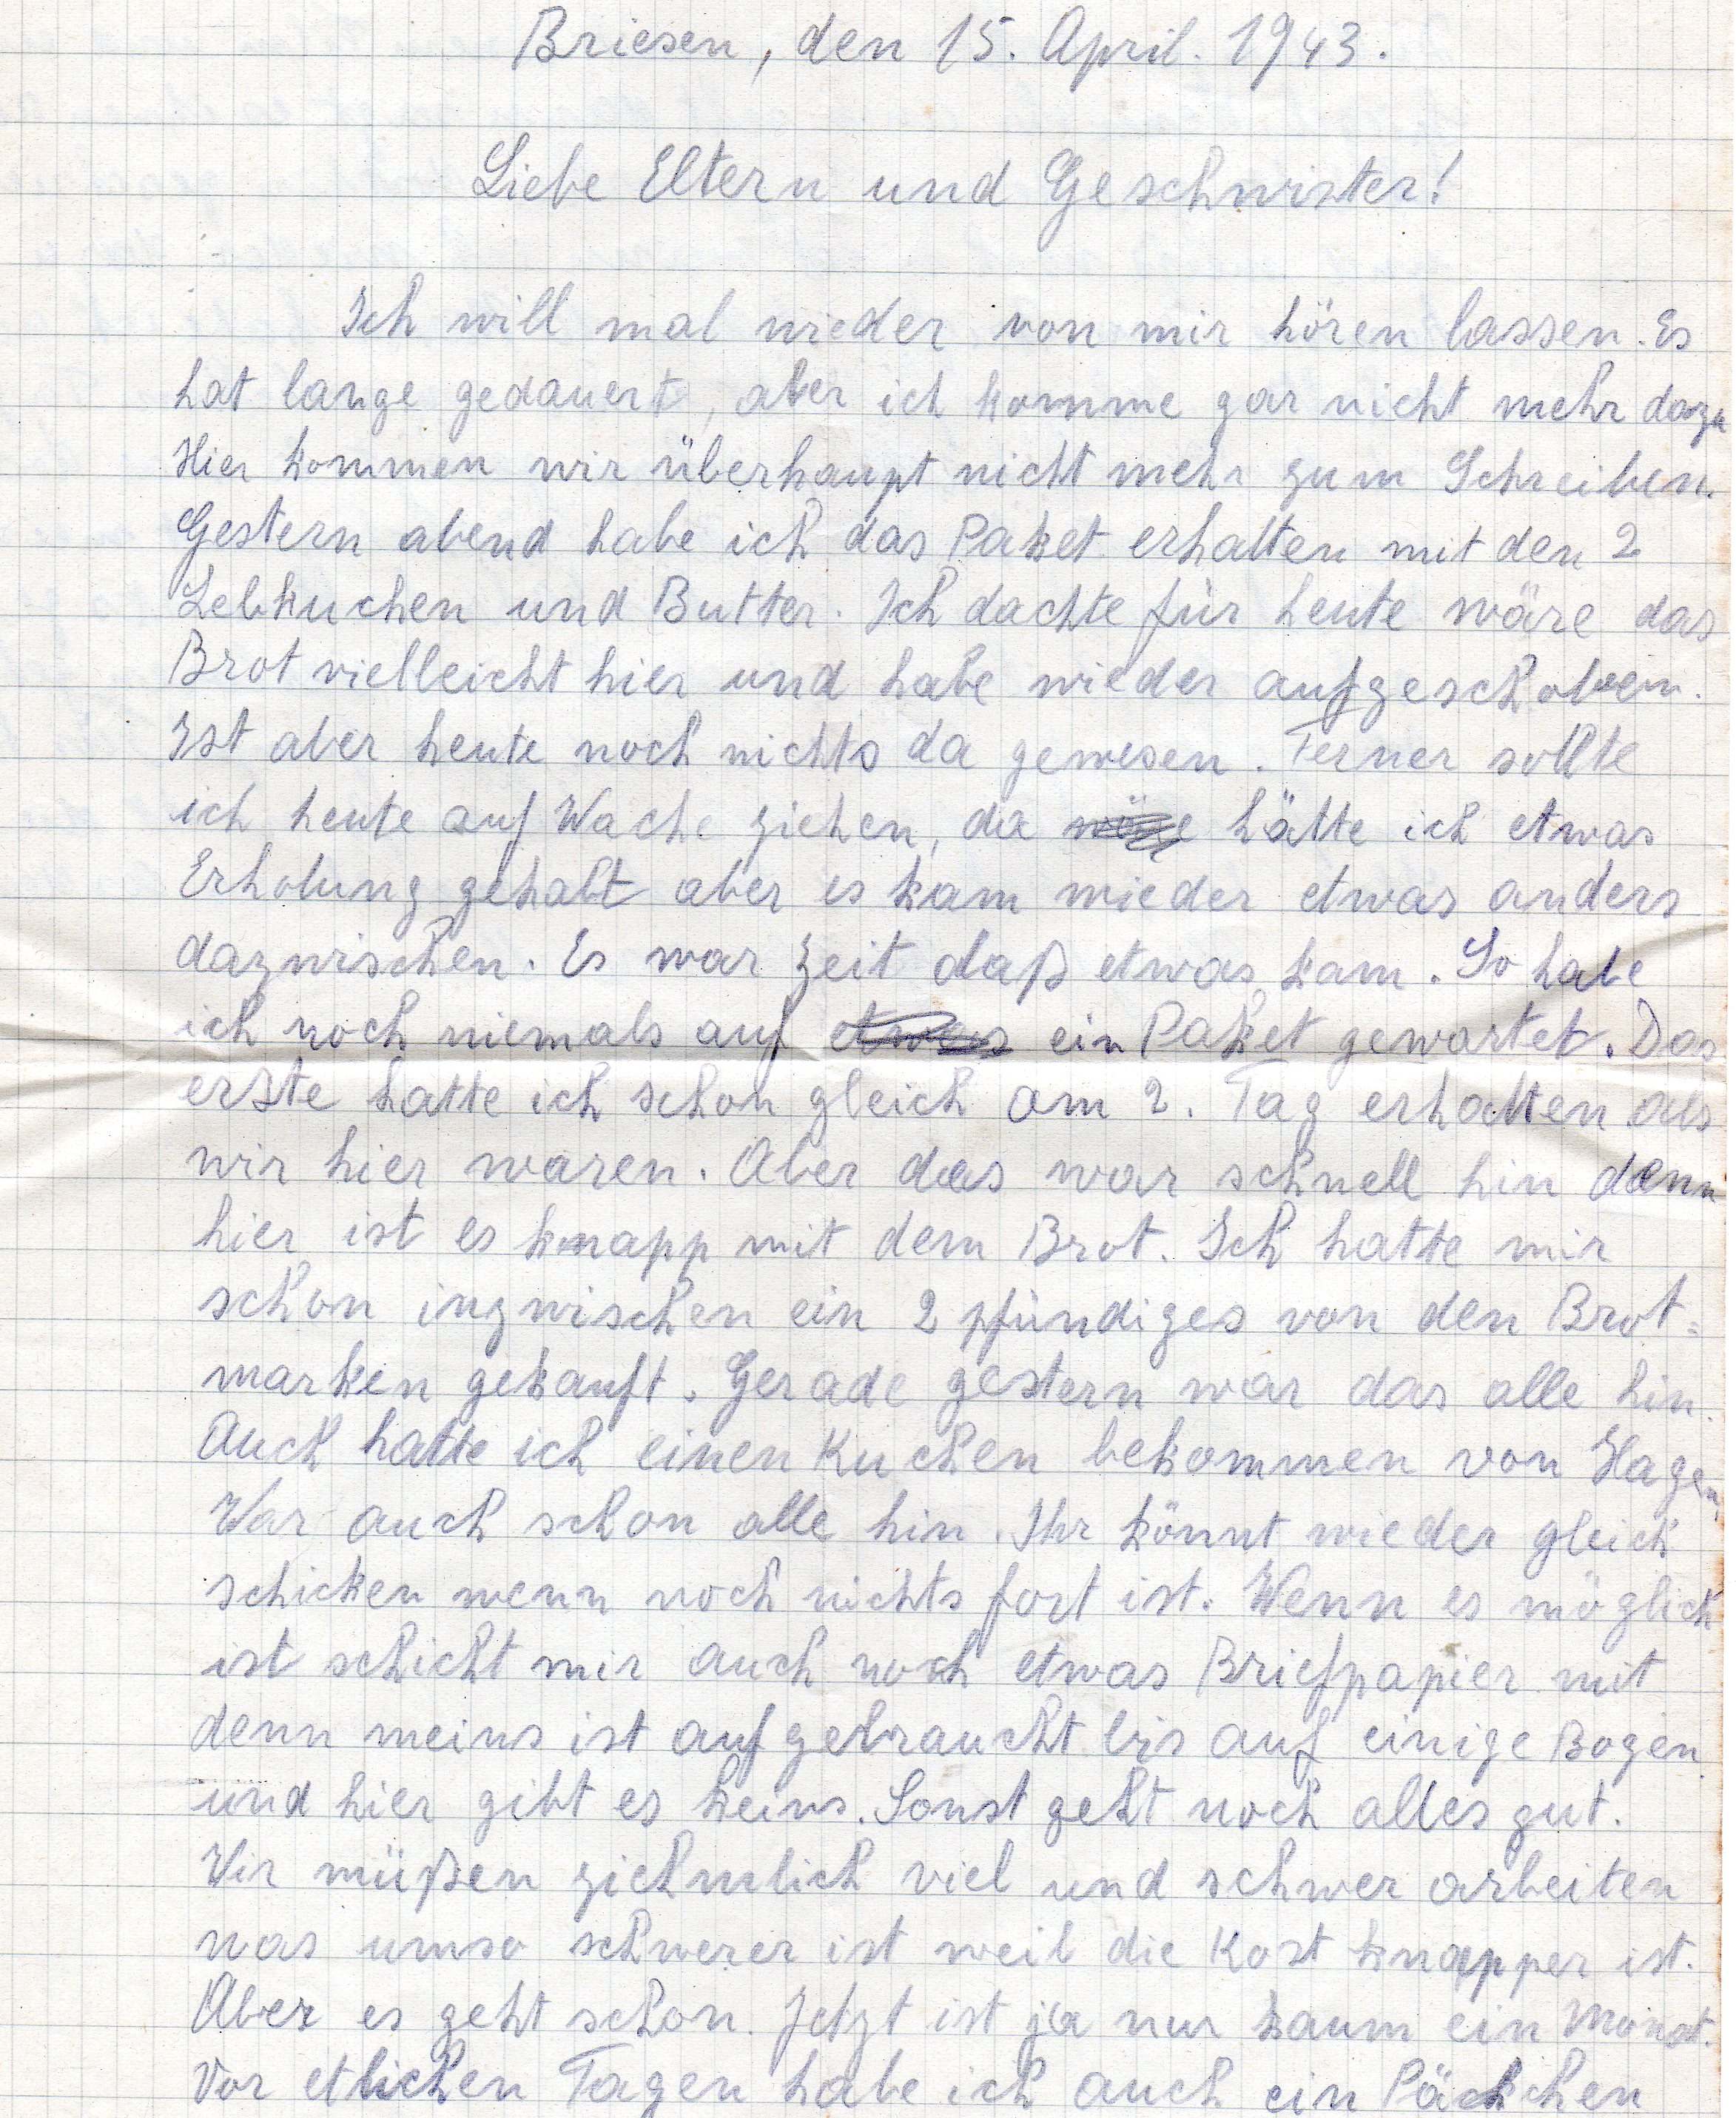 Briesen, den 15. April. 1943.
Liebe Eltern und Geschwister!
Ich will mal wieder von mir hören lassen. Es
hat lange gedauert, aber ich komme gar nicht mehr dazu
Hier kommen wir überhaupt nicht mehr zum Schreiben.
Gestern abend habe ich das Paket erhalten mit den 2
Lebkuchen und Butter. Ich dachte für heute wäre das
Brot vielleicht hier und habe wieder aufgeschoben.
Ist aber heute noch nichts da gewesen. Ferner sollte
ich heute auf Wache ziehen, da wäre hätte ich etwas
Erholung gehabt aber es kam wieder etwas anders
dazwischen. Es war Zeit daß etwas kam. So habe
ich noch niemals auf etwas ein Paket gewartet. Das
erste hatte ich schon gleich am 2. Tag erhalten als
wir hier waren. Aber das war schnell hin denn
hier ist es knapp mit dem Brot. Ich hatte mir
schon inzwischen ein 2 pfündiges von den Brot=
marken gekauft. Gerade gestern war das alle hin.
Auch hatte ich einen Kuchen bekommen von Hagen,
War auch schon alle hin. Ihr könnt wieder gleich
schicken wenn noch nichts fort ist. Wenn es möglich
ist schickt mir auch noch etwas Briefpapier mit
denn meins ist aufgebraucht bis auf einige Bogen
und hier gibt es keins. Sonst geht noch alles gut.
Wir müßen ziehmlich viel und schwer arbeiten
was umso schwerer ist weil die Kost knapper ist.
Aber es geht schon. Jetzt ist ja nur kaum ein Monat.
Vor etlichen Tagen habe ich auch ein Päckchen